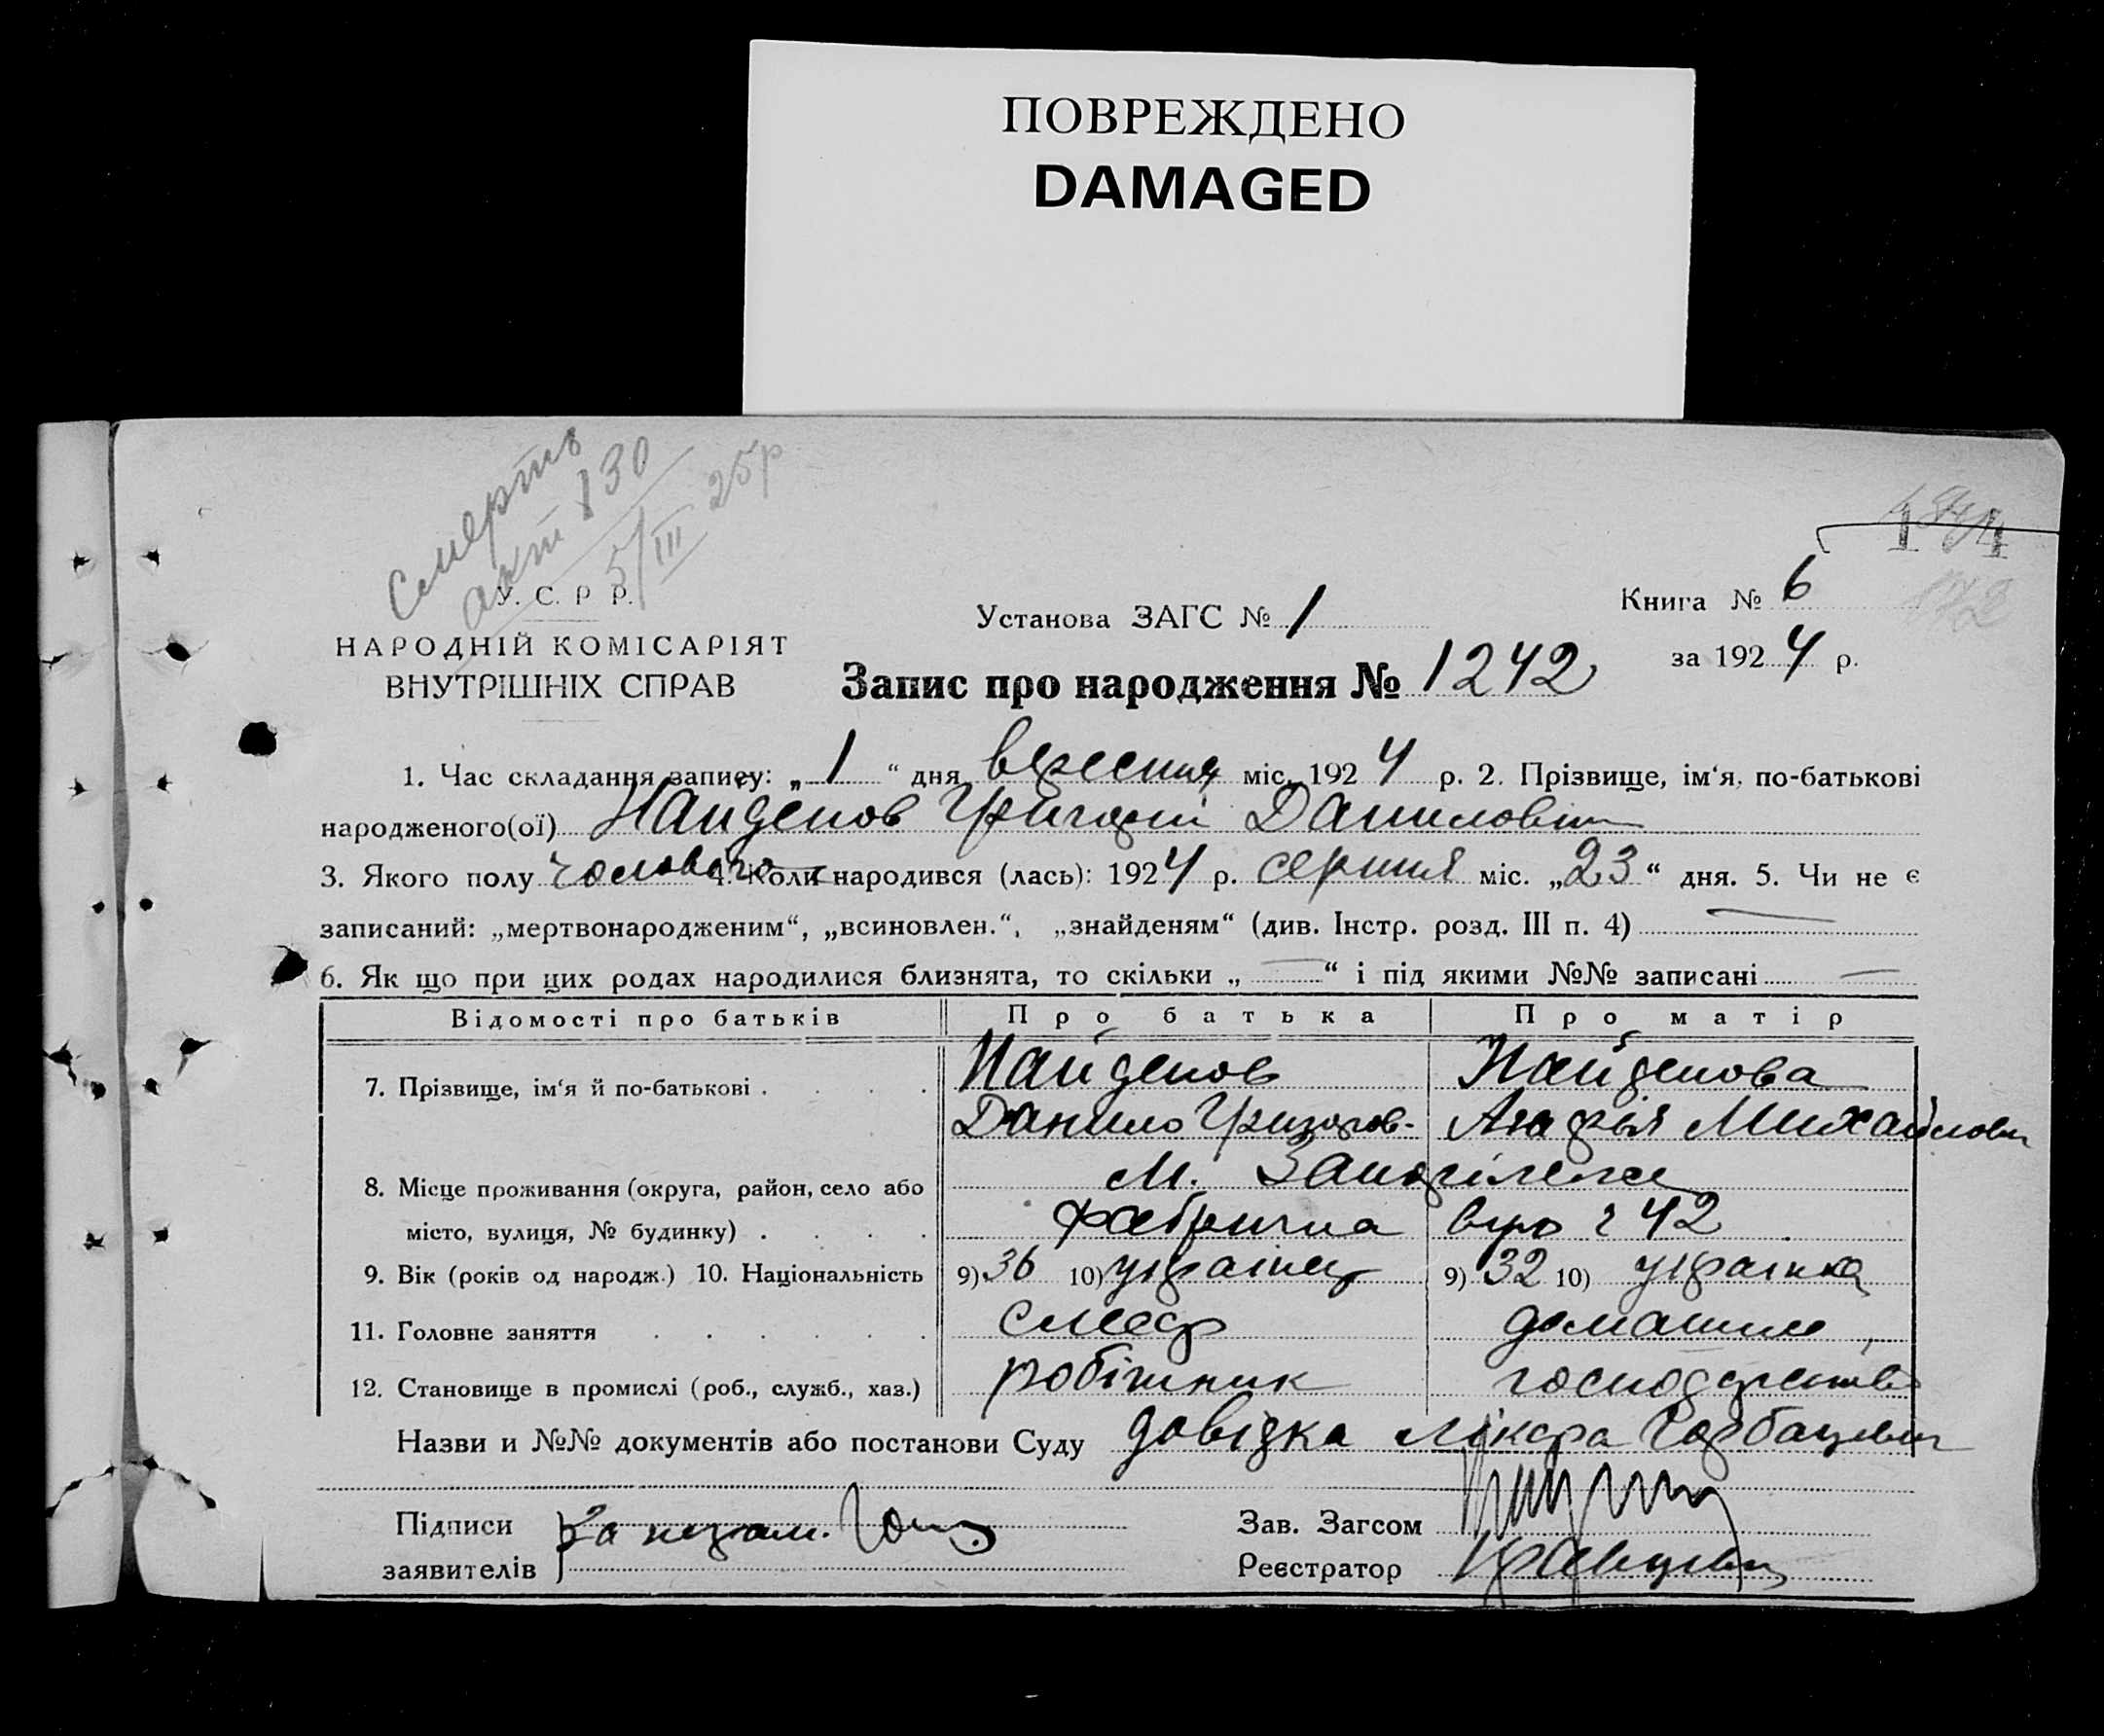 ПОВРЕЖДЕНО
DAMAGED
Смерть
акт 130
5/III 25р
У. С. Р Р.
НАРОДНІЙ КОМІСАРІЯТ
ВНУТРІШНІХ СПРАВ
Установа ЗАГС № 1
Запис про народження № 1242
Книга № 6
за 1924 р.
1. Час складання запису: „1“ дня вересня міс. 1924 р. 2. Прізвище, ім‘я, по-батькові
народженого(ої) Найденов Григорій Данилович
3. Якого полу чоловочого 4. Коли народився (лась): 1924 р. серпня міс. „23“ дня. 5. Чи не є
записаний: „мертвонародженим“, „всиновлен.“, „знайденям“ (див. Інстр. розд. III п. 4) —
6. Як що при цих родах народилися близнята, то скільки „—“ і під якими №№ записані —
Відомості про батьків Про батька Про матір
7. Прізвище, ім‘я й по-батькові . . . . Найденов Найденова
Данило Григоров- Агафья Михайлов
8. Місце проживання (округа, район, село або м. Запоріжжє
місто, вулиця, № будинку) . . . . Фабрична 42
9. Вік (років од народж.) 10. Національність 9) 36 10) українец 9) 32 10) українка
11. Головне заняття . . . . . . слесар домашнє
12. Становище в промислі (роб., служб., хаз.) робітник господарство
Назви и №№ документів або постанови Суду довідка лікаря Горбацевич
Підписи
заявителів За неграм.
Зав. Загсом
Реєстратор